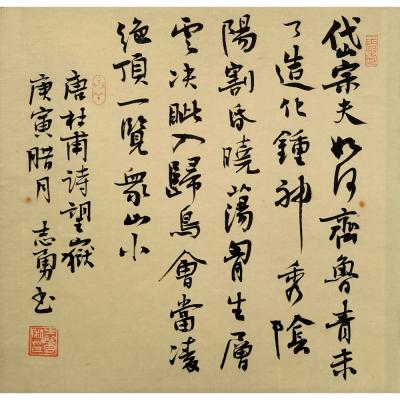 岱宗夫如何齊魯青未
了造化鍾神秀陰
陽割昏曉蕩胷生層
雲決眦入歸鳥會當凌
絶頂一覽衆山小
唐杜甫詩望嶽
庚寅腊月志勇书